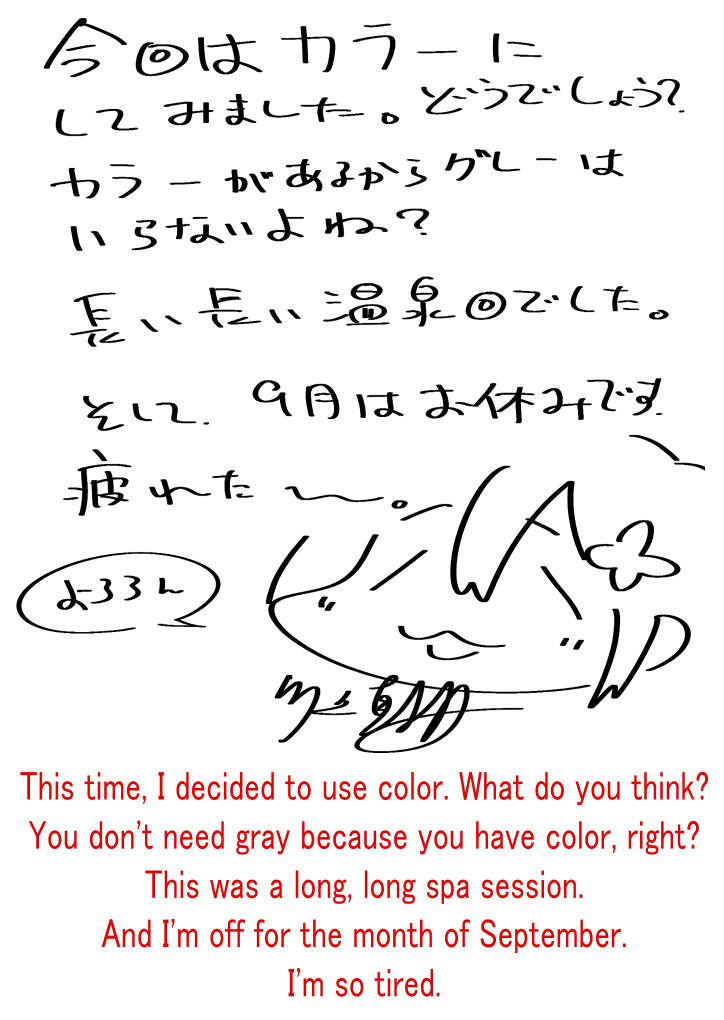 今回はカラーに
してみました。どうでしょう？
カラーがあるからグレーは
いらないよね？
長い長い温泉回でした。
そして、9月はお休みです
疲れた〜。
よろろん
This time, I decided to use color. What do you think?
You don't need gray because you have color, right?
This was a long, long spa session.
And I'm off for the month of September.
I'm so tired.